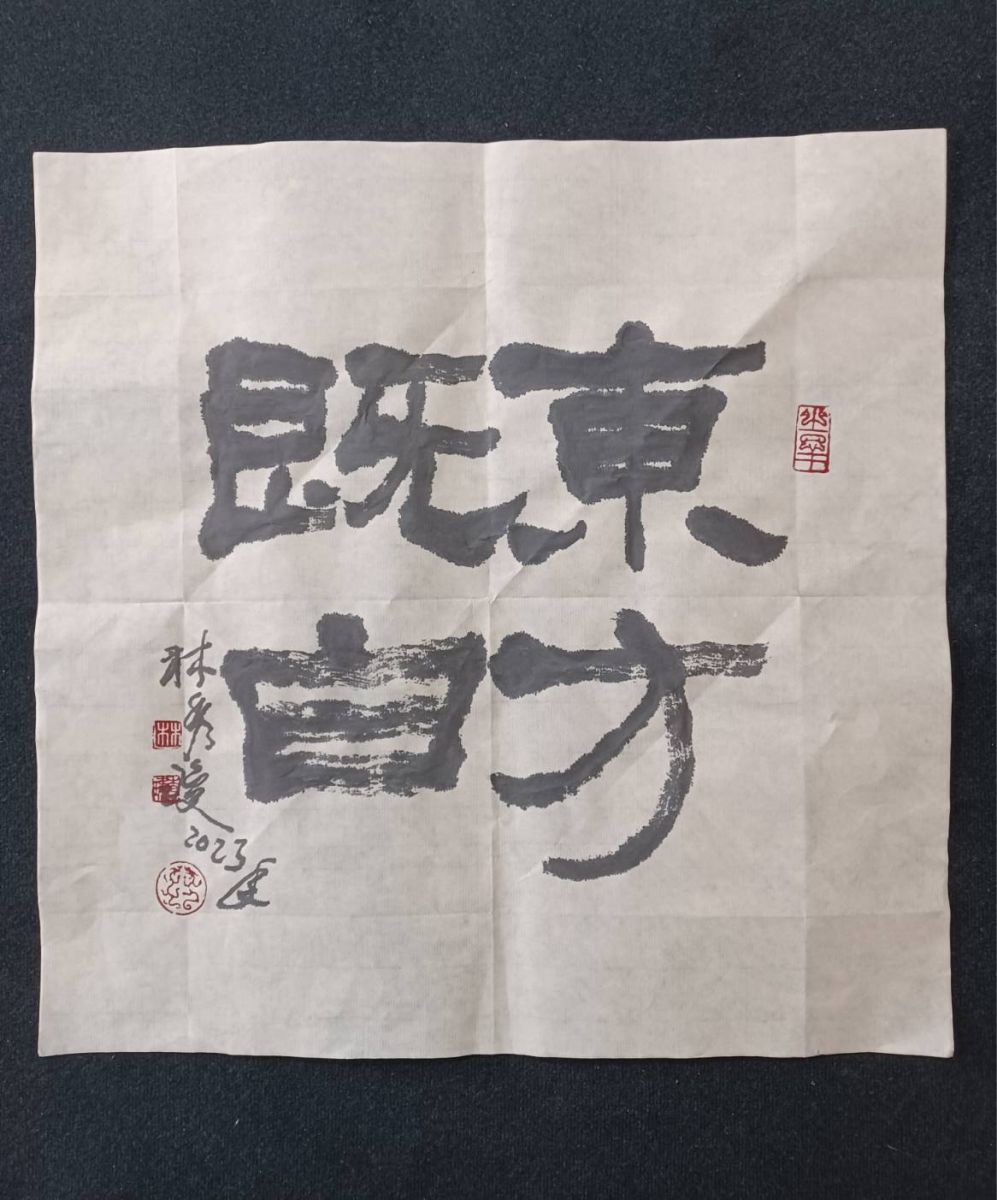 東方
既白
林秀凌
2023年
林